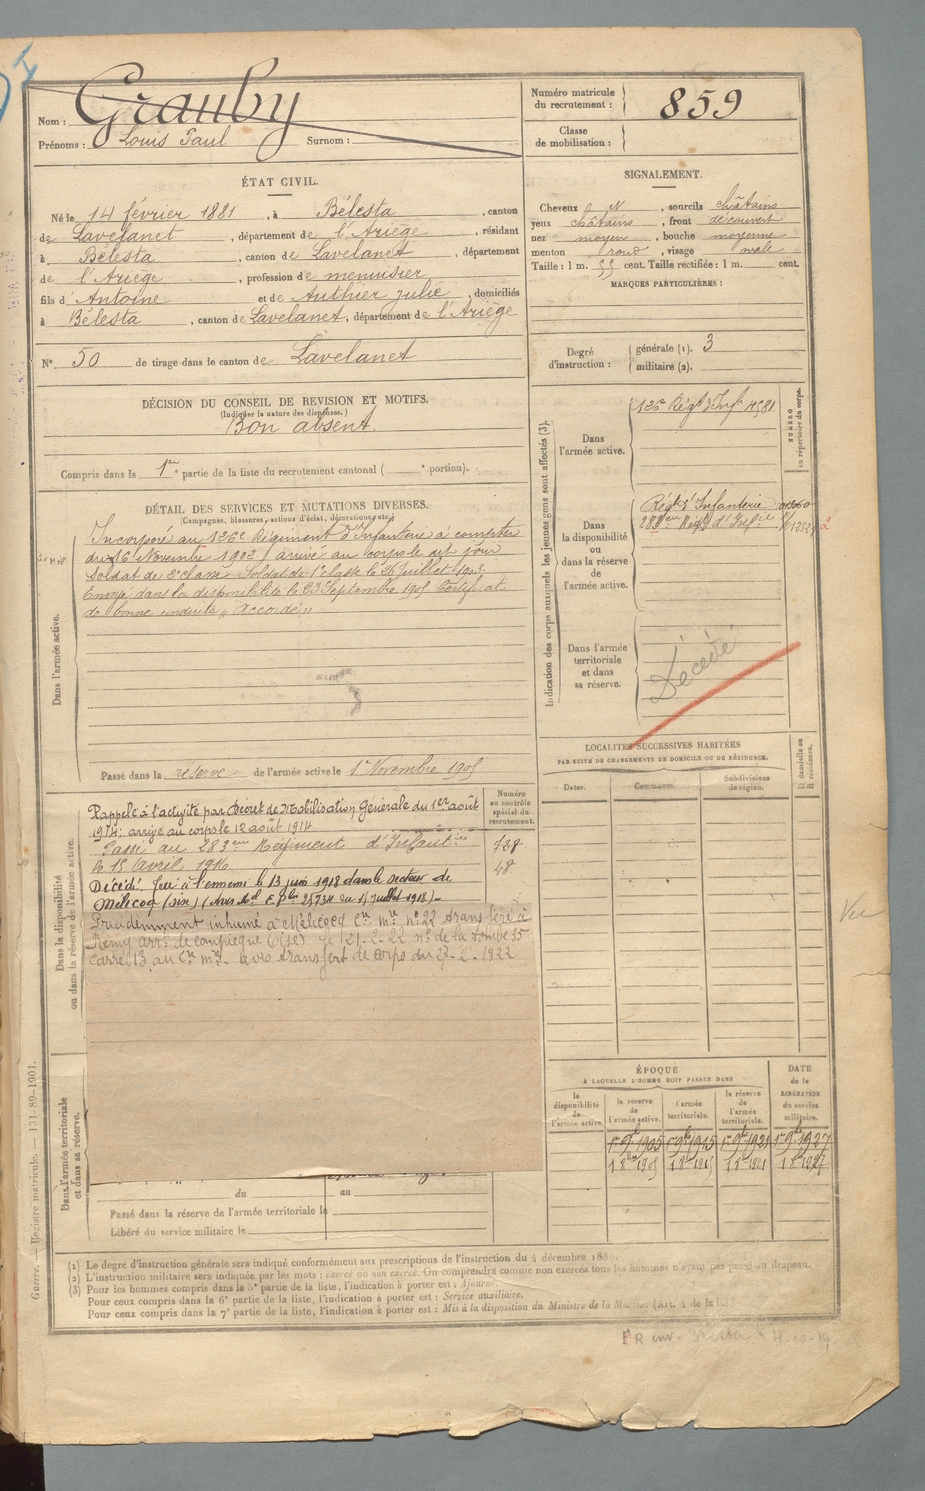 Nom : Grauby
Prénoms : Louis Paul Surnom :
Numéro matricule du recrutement : 859
Classe de mobilisation :
ÉTAT CIVIL.
Né le 14 février 1881, à Bélesta, canton
de Lavelanet, département de l'Ariège, résidant
à Bélesta, canton de Lavelanet, département
de l'Ariège, profession de menuisier
fils d'Antoine et de Authier Julie, domiciliés
à Bélesta, canton de Lavelanet, département de l'Ariège
N° 50 de tirage dans le canton de Lavelanet
SIGNALEMENT.
Cheveux N, sourcils châtains
yeux châtains, front découvert
nez moyen, bouche moyenne
menton rond, visage ovale
Taille : 1 m. 55 cent. Taille rectifiée : 1 m. cent.
MARQUES PARTICULIÈRES :
Degré d'instruction : générale (1). 3
militaire (2).
DÉCISION DU CONSEIL DE REVISION ET MOTIFS.
(Indiquer la nature des dispenses.)
Bon absent
Compris dans la 1re partie de la liste du recrutement cantonal ( e portion).
DÉTAIL DES SERVICES ET MUTATIONS DIVERSES.
(Campagnes, blessures, actions d'éclat, décorations, etc.)
Dans l'armée active.
Incorporé au 126e Régiment d'Infanterie à compter
du 16 Novembre 1902, arrivé au corps le dit jour
Soldat de 2e classe. Soldat de 1e classe le 26 Juillet 1903.
Envoyé dans la disponibilité le 23 Septembre 1905 Certificat
de bonne conduite "accordé"
Passé dans la réserve de l'armée active le 1er Novembre 1905
Dans la disponibilité ou dans la réserve de l'armée active.
Rappelé à l'activité par Décret de Mobilisation Générale du 1er août
1914: arrivé au corps le 12 août 1914
Passé au 283eme Régiment d'Infanterie
le 15 Avril 1916
Décédé. Tué à l'ennemi le 13 juin 1918 dans le secteur de
Mélicoq (oise)
Précédemment inhumé à Mélicocq Cre mre n° 22 transféré à
Rémy arrt de compiègne (Oise) le 21-2-22 n° de la tombe 35
Carré 13 au Cre mre. avis transfert de corps du 27-2-1922
Numéro au contrôle spécial du recrutement.
728
48
Dans l'armée territoriale et dans sa réserve.
du au
Passé dans la réserve de l'armée territoriale le
Libéré du service militaire le
Indication des corps auxquels les jeunes gens sont affectés (3).
NUMÉRO au répertoire du corps.
Dans l'armée active.
126e Régt d'Inf. 4581
Dans la disponibilité ou dans la réserve de l'armée active.
Régt d'Infanterie
283eme Régt d'Infie
Dans l'armée territoriale et dans sa réserve.
Décédé
LOCALITÉS SUCCESSIVES HABITÉES
PAR SUITE DE CHANGEMENTS DE DOMICILE OU DE RÉSIDENCE.
Dates. Communes. Subdivisions de région. D domicile ou R résidence.
Vu
ÉPOQUE
À LAQUELLE L'HOMME DOIT PASSER DANS
DATE de la LIBÉRATION du service militaire.
la disponibilité de l'armée active.
la réserve de l'armée active.
l'armée territoriale.
la réserve de l'armée territoriale.
1er 9bre 1905 1er 9bre 1915 1er 9bre 1921 1er 9bre 1927
Guerre. — Registre matricule. — 131-89-1901.
(1) Le degré d'instruction générale sera indiqué conformément aux prescriptions de l'instruction du 4 décembre 1889.
(2) L'instruction militaire sera indiquée par les mots : exercé ou non exercé. On comprendra comme non exercés tous les hommes n'ayant pas passé au drapeau.
(3) Pour les hommes compris dans la 5e partie de la liste, l'indication à porter est : Ajourné.
Pour ceux compris dans la 6e partie de la liste, l'indication à porter est : Service auxiliaire.
Pour ceux compris dans la 7e partie de la liste, l'indication à porter est : Mis à la disposition du Ministre de la Marine.